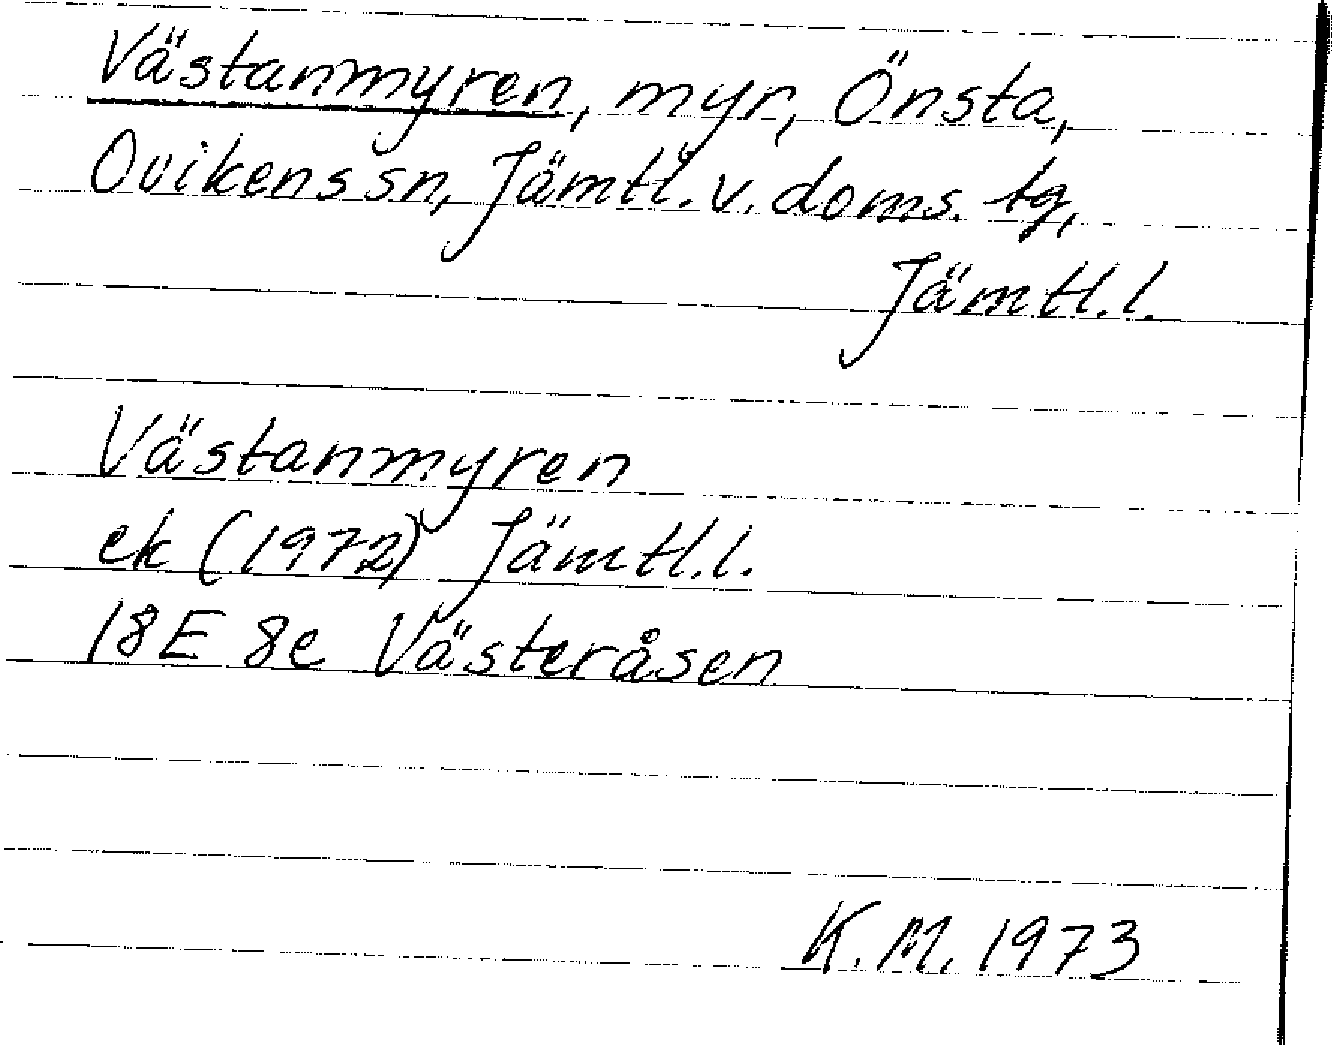 Västanmyren, myr, Önsta,
Ovikens sn, Jämtl. v. doms. tg,
Jämtl. l.
Västanmyren
ek (1972) Jämtl. l.
18E 8e Västeråsen
K.M. 1973